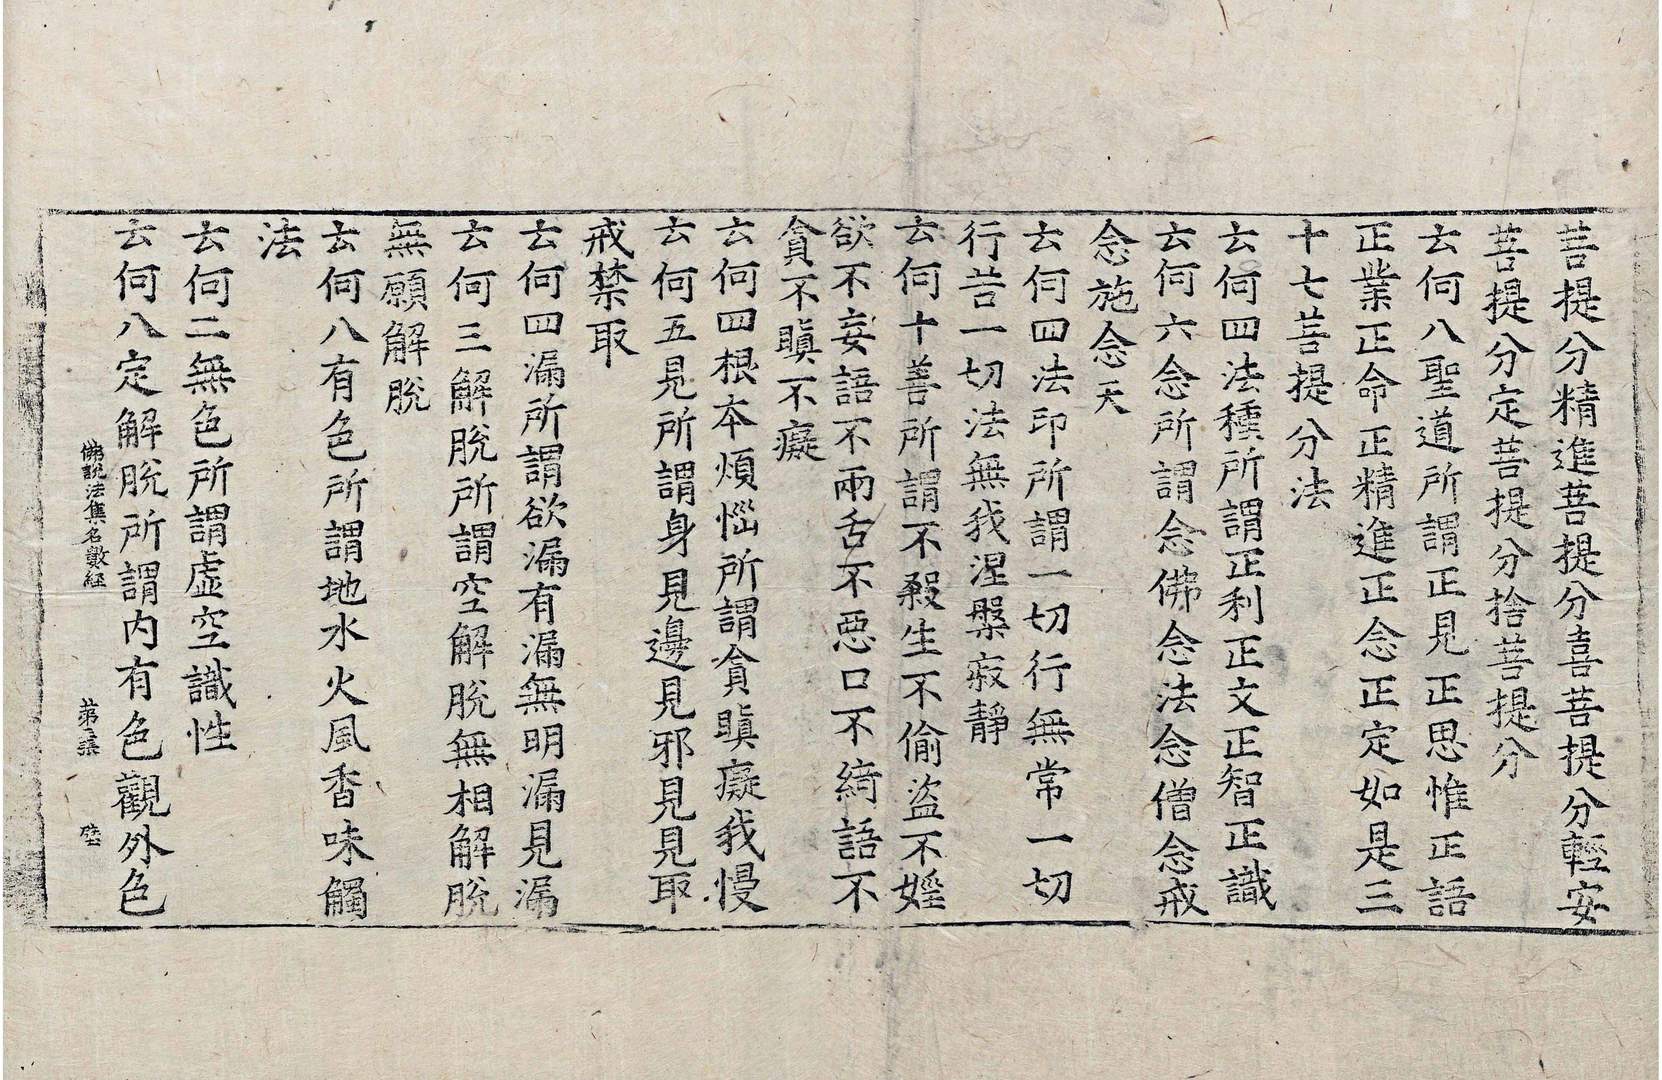 菩提分精進菩提分喜菩提分輕安
菩提分定菩提分捨菩提分
云何八聖道所謂正見正思惟正語
正業正命正精進正念正定如是三
十七菩提分法
云何四法種所謂正利正文正智正識
云何六念所謂念佛念法念僧念戒
念施念天
云何四法印所謂一切行無常一切
行苦一切法無我涅槃寂靜
云何十善所謂不殺生不偷盜不婬
欲不妄語不兩舌不惡口不綺語不
貪不瞋不癡
云何四根本煩惱所謂貪瞋癡我慢
云何五見所謂身見邊見邪見見取
戒禁取
云何四漏所謂欲漏有漏無明漏見漏
云何三解脫所謂空解脫無相解脫
無願解脫
云何八有色所謂地水火風香味觸
法
云何二無色所謂虛空識性
云何八定解脫所謂內有色觀外色
佛說法集名數經